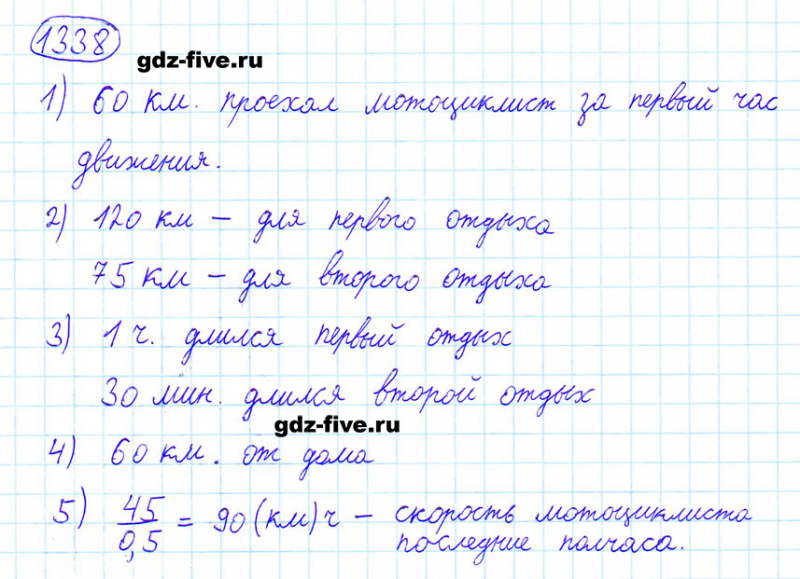 1338
gdz-five.ru
1) 60 км. проехал мотоциклист за первый час
движения.
2) 120 км – для первого отдыха
75 км – для второго отдыха
3) 1 ч. длился первый отдых
30 мин. длился второй отдых
gdz-five.ru
4) 60 км. от дома
5) 45/0,5 = 90 (км) ч – скорость мотоциклиста
последние полчаса.